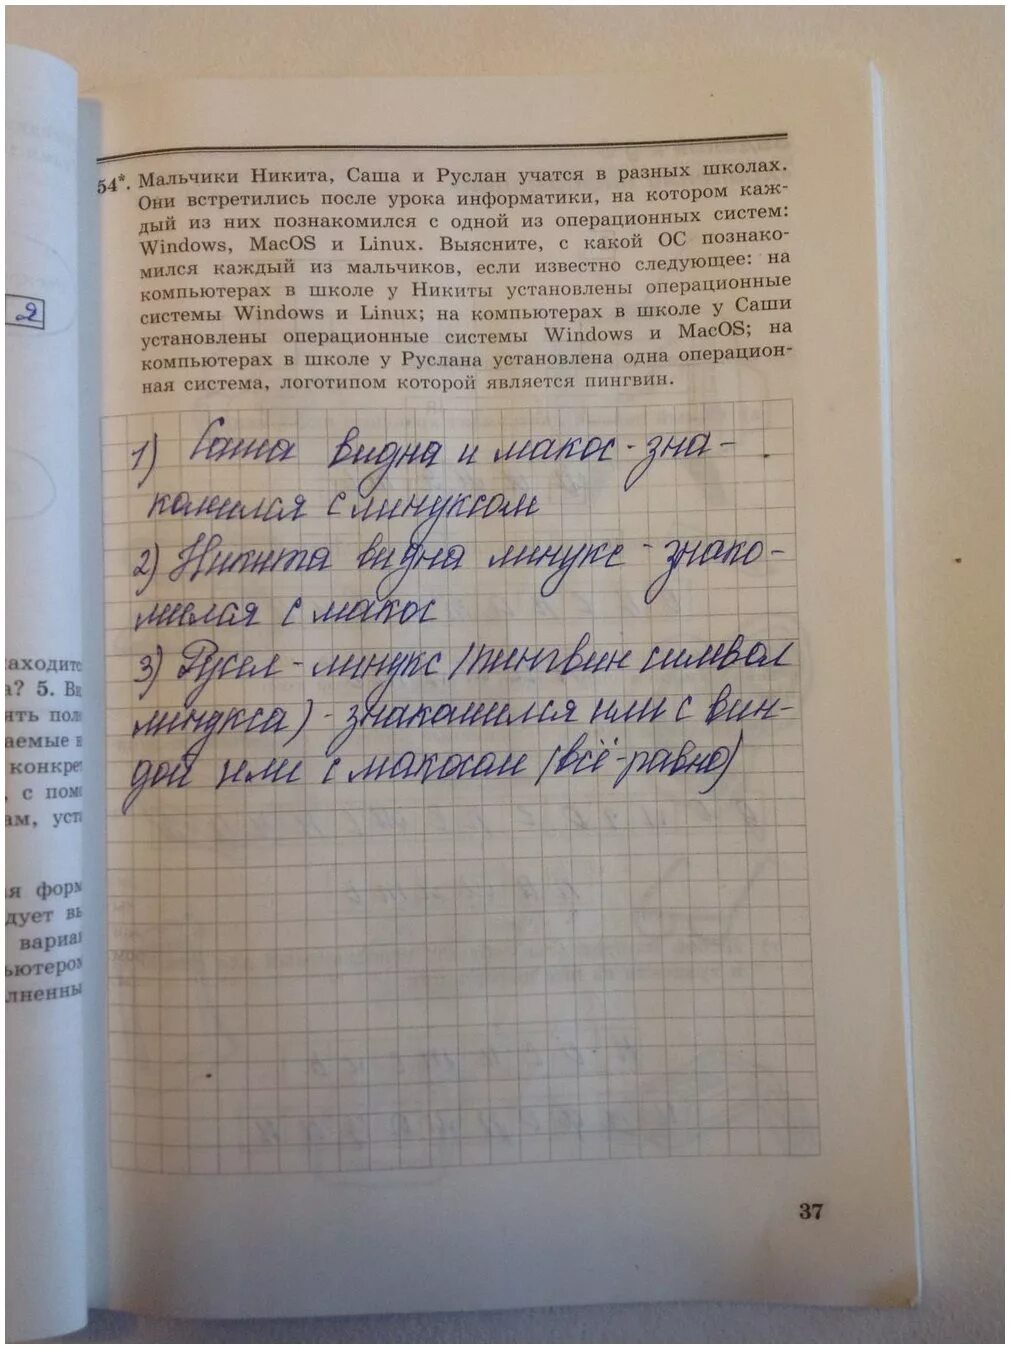 54*. Мальчики Никита, Саша и Руслан учатся в разных школах.
Они встретились после урока информатики, на котором каж-
дый из них познакомился с одной из операционных систем:
Windows, MacOS и Linux. Выясните, с какой ОС познако-
мился каждый из мальчиков, если известно следующее: на
компьютерах в школе у Никиты установлены операционные
системы Windows и Linux; на компьютерах в школе у Саши
установлены операционные системы Windows и MacOS; на
компьютерах в школе у Руслана установлена одна операцион-
ная система, логотипом которой является пингвин.
2
1) Саша видна и макос - зна-
комился с линуксом
2) Никита видна линукс - знако-
мился с макос
3) Русел - линукс (пингвин символ
линукса) - знакомился или с вин-
дой или с макосом (всё-равно)
находится
а? 5. Ви
ять пол
аемые в
конкре
, с пом
ам, уст
ая форм
дует вы
вариан
ьютером
лненны
37